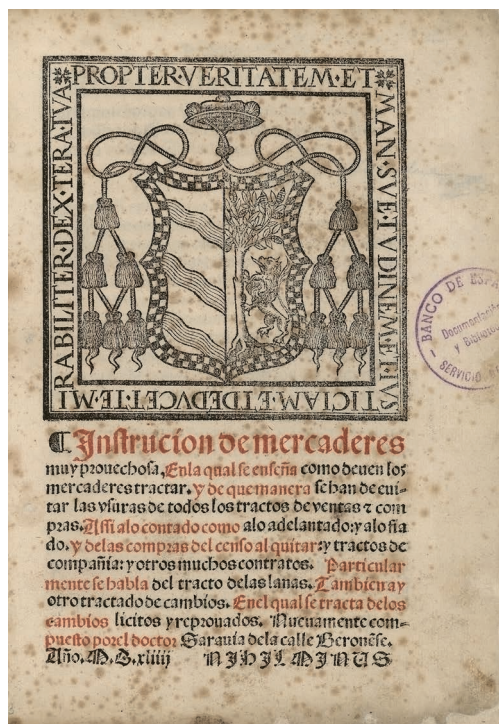 PROPTER·VERITATEM·ET·
MAN·SVE·TVDINEM·ET·IVS
TICIAM·ET·DEDVCET·TE·MI
RABILITER·DEX·TERA·TVA
BANCO DE ESPA
Documentación
y Biblioteca
SERVICIO
¶ Instrucion de mercaderes
muy prouechosa, Enla qual se enseña como deuen los
mercaderes tractar. y de que manera se han de eui-
tar las vsuras de todos los tractos de ventas ⁊ com
pras. Assi alo contado como alo adelantado: y alo fia
do. y delas compras del censo al quitar: y tractos de
compañia: y otros muchos contratos. Particular
mente se habla del tracto delas lanas. Tambien ay
otro tractado de cambios. Enel qual se tracta delos
cambios licitos y reprouados. Nueuamente com-
puesto por el doctor Sarauia dela calle Beronẽse.
Año. M. D. xliiij NIHIL MINUS